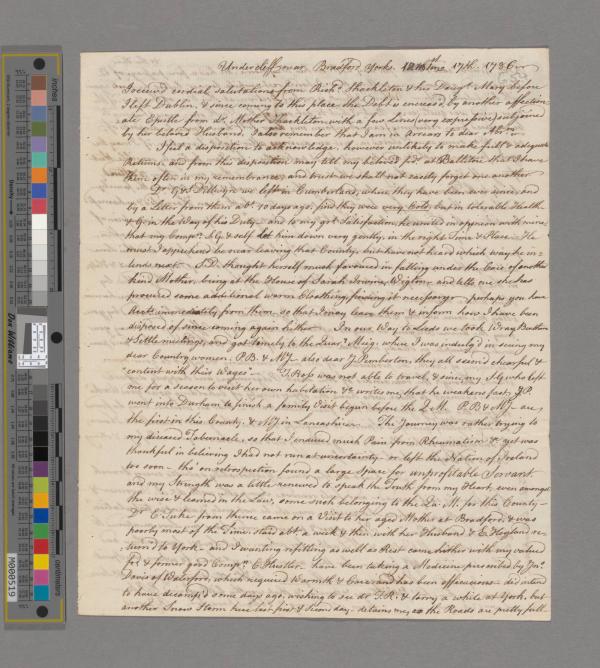 Undercliffe near Bradford Yorks. 17th 1786
I received cordial salutations from Richd. Shackleton & his Daugr. Mary before
I left Dublin, & since coming to this place the Debt is encreas'd by another affection-
ate Epistle from dr. Mother Shackleton, with a few Lines (very expressive) subjoined
by her beloved Husband. I also remember that I am in Arrears to dear
I feel a disposition to acknowledge, however unlikely to make full & adequate
Returns, and from this disposition may tell my beloved frds. at Ballitore that I have
them often in my remembrance, and trust we shall not easily forget one another
G & S Dillwyn we left in Cumberland, where they have been ever since, and
by a Letter from them abt. 10 days ago, find they were very Poorly, but in tolerable Health
& G. in the Way of his Duty - and to my grt. Satisfaction, he united in opinion with mine,
that my Compn. & self let him down very gently, in the right Time & Place - He
must I apprehend be near leaving that County, but have not heard which way he in-
tends next. S.D. thought herself much favoured in falling under the Care of another
kind Mother, being at the House of Sarah Irwin, Wigton, and tells me she has
procured some additional warm Cloathing, finding it necessary - perhaps you have
heard immediately from them, so that I may leave them & inform how I have been
disposed of since coming again hither - In our Way to Leeds we took Wray, Bentham
& Settle meetings, and got timely to the Quarr. Meetg. where I was indulg'd in seeing my
dear Country women, P.B. & M.J. also dear J. Pemberton, they all seem'd chearful &
"content with their Wages" - T. Ross was not able to travel, & since, my who left
me for a season to visit her own habitation &c. writes me, that he weakens fast, J.P.
went into Durham to finish a family Visit begun before the Q.M. P.B & M.J - are,
the first in this County, & M.J. in Lancashire. The Journey was rather trying to
my diseased Tabernacle, so that I endured much Pain from Rheumatism & yet was
thankful in believing I had not run at uncertainty, or left the Nation of Ireland
too soon - tho' on retrospection found a large Space for unprofitable Servant
and my Strength was a little renewed to speak the Truth from my Heart, even amongst
the wise & learned in the Law, some such belonging to the Qu. M. for this County -
Dr. E. Tuke from thence came on a Visit to her aged Mother at Bradford, & was
poorly most of the Time, staid abt. a week & then with her Husband & E. Hoyland re-
turn'd to York - and I wanting refitting as well as Rest came hither with my valued
frd. & former good Compn. C. Hustler - have been taking a Medicine prescribed by Jno.
Davis of Waterford, which required Warmth & Care, and has been efficacious - did intend
to have decamp'd some days ago, wishing to see dr. T.R. & tarry a while at York, but
another Snow Storm here last first & second day - detains me, as the Roads are pretty full
inches
centimeters
Don Williams
M000519